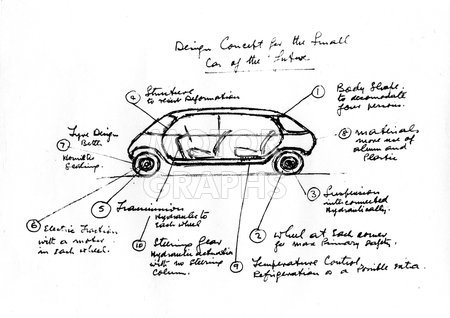 Design Concept for the Small
Car of the Future.
4 Structure
to resist Deformation
1 Body Shape
to accomodate
four persons.
7 Tyre Design
8 materials
more use of
alum and
Plastic
GRAPHS
3 Suspension
interconnected
Hydraulically.
5 Transmission
Hydraulic to
each wheel
6 Electric Traction
with a motor
in each wheel.
10 Steering Gear
Hydraulic actuation
with no Steering
Column.
2 wheel at Each corner
for max Primary Safety.
9 Temperature Control
Refrigeration as a Possible extra.